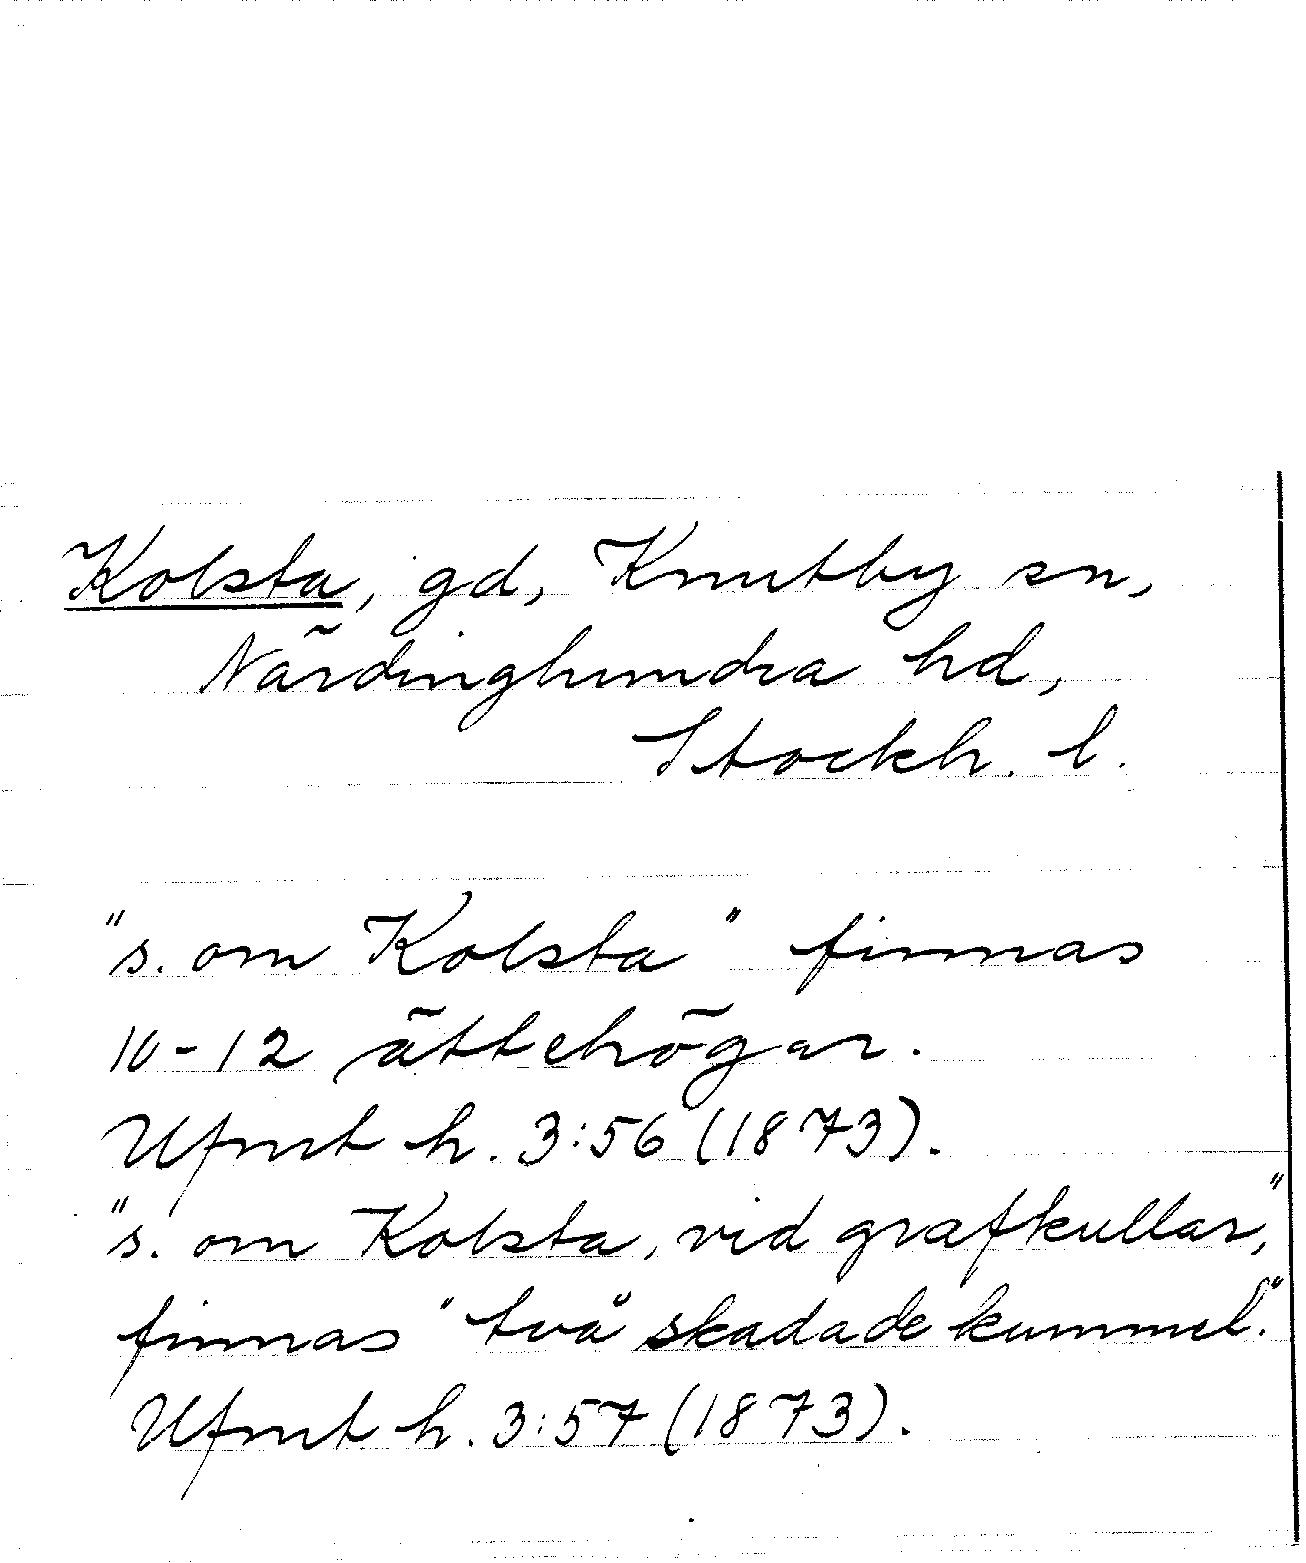 Kolsta, gd, Knutby sn,
Närdinghundra hd,
Stockh. l.
"s. om Kolsta" finnas
10-12 ättehögar.
Ufmt h. 3:56 (1873).
"s. om Kolsta, vid grafkullar,"
finnas "två skadade kummel."
Ufmt h. 3:57 (1873).